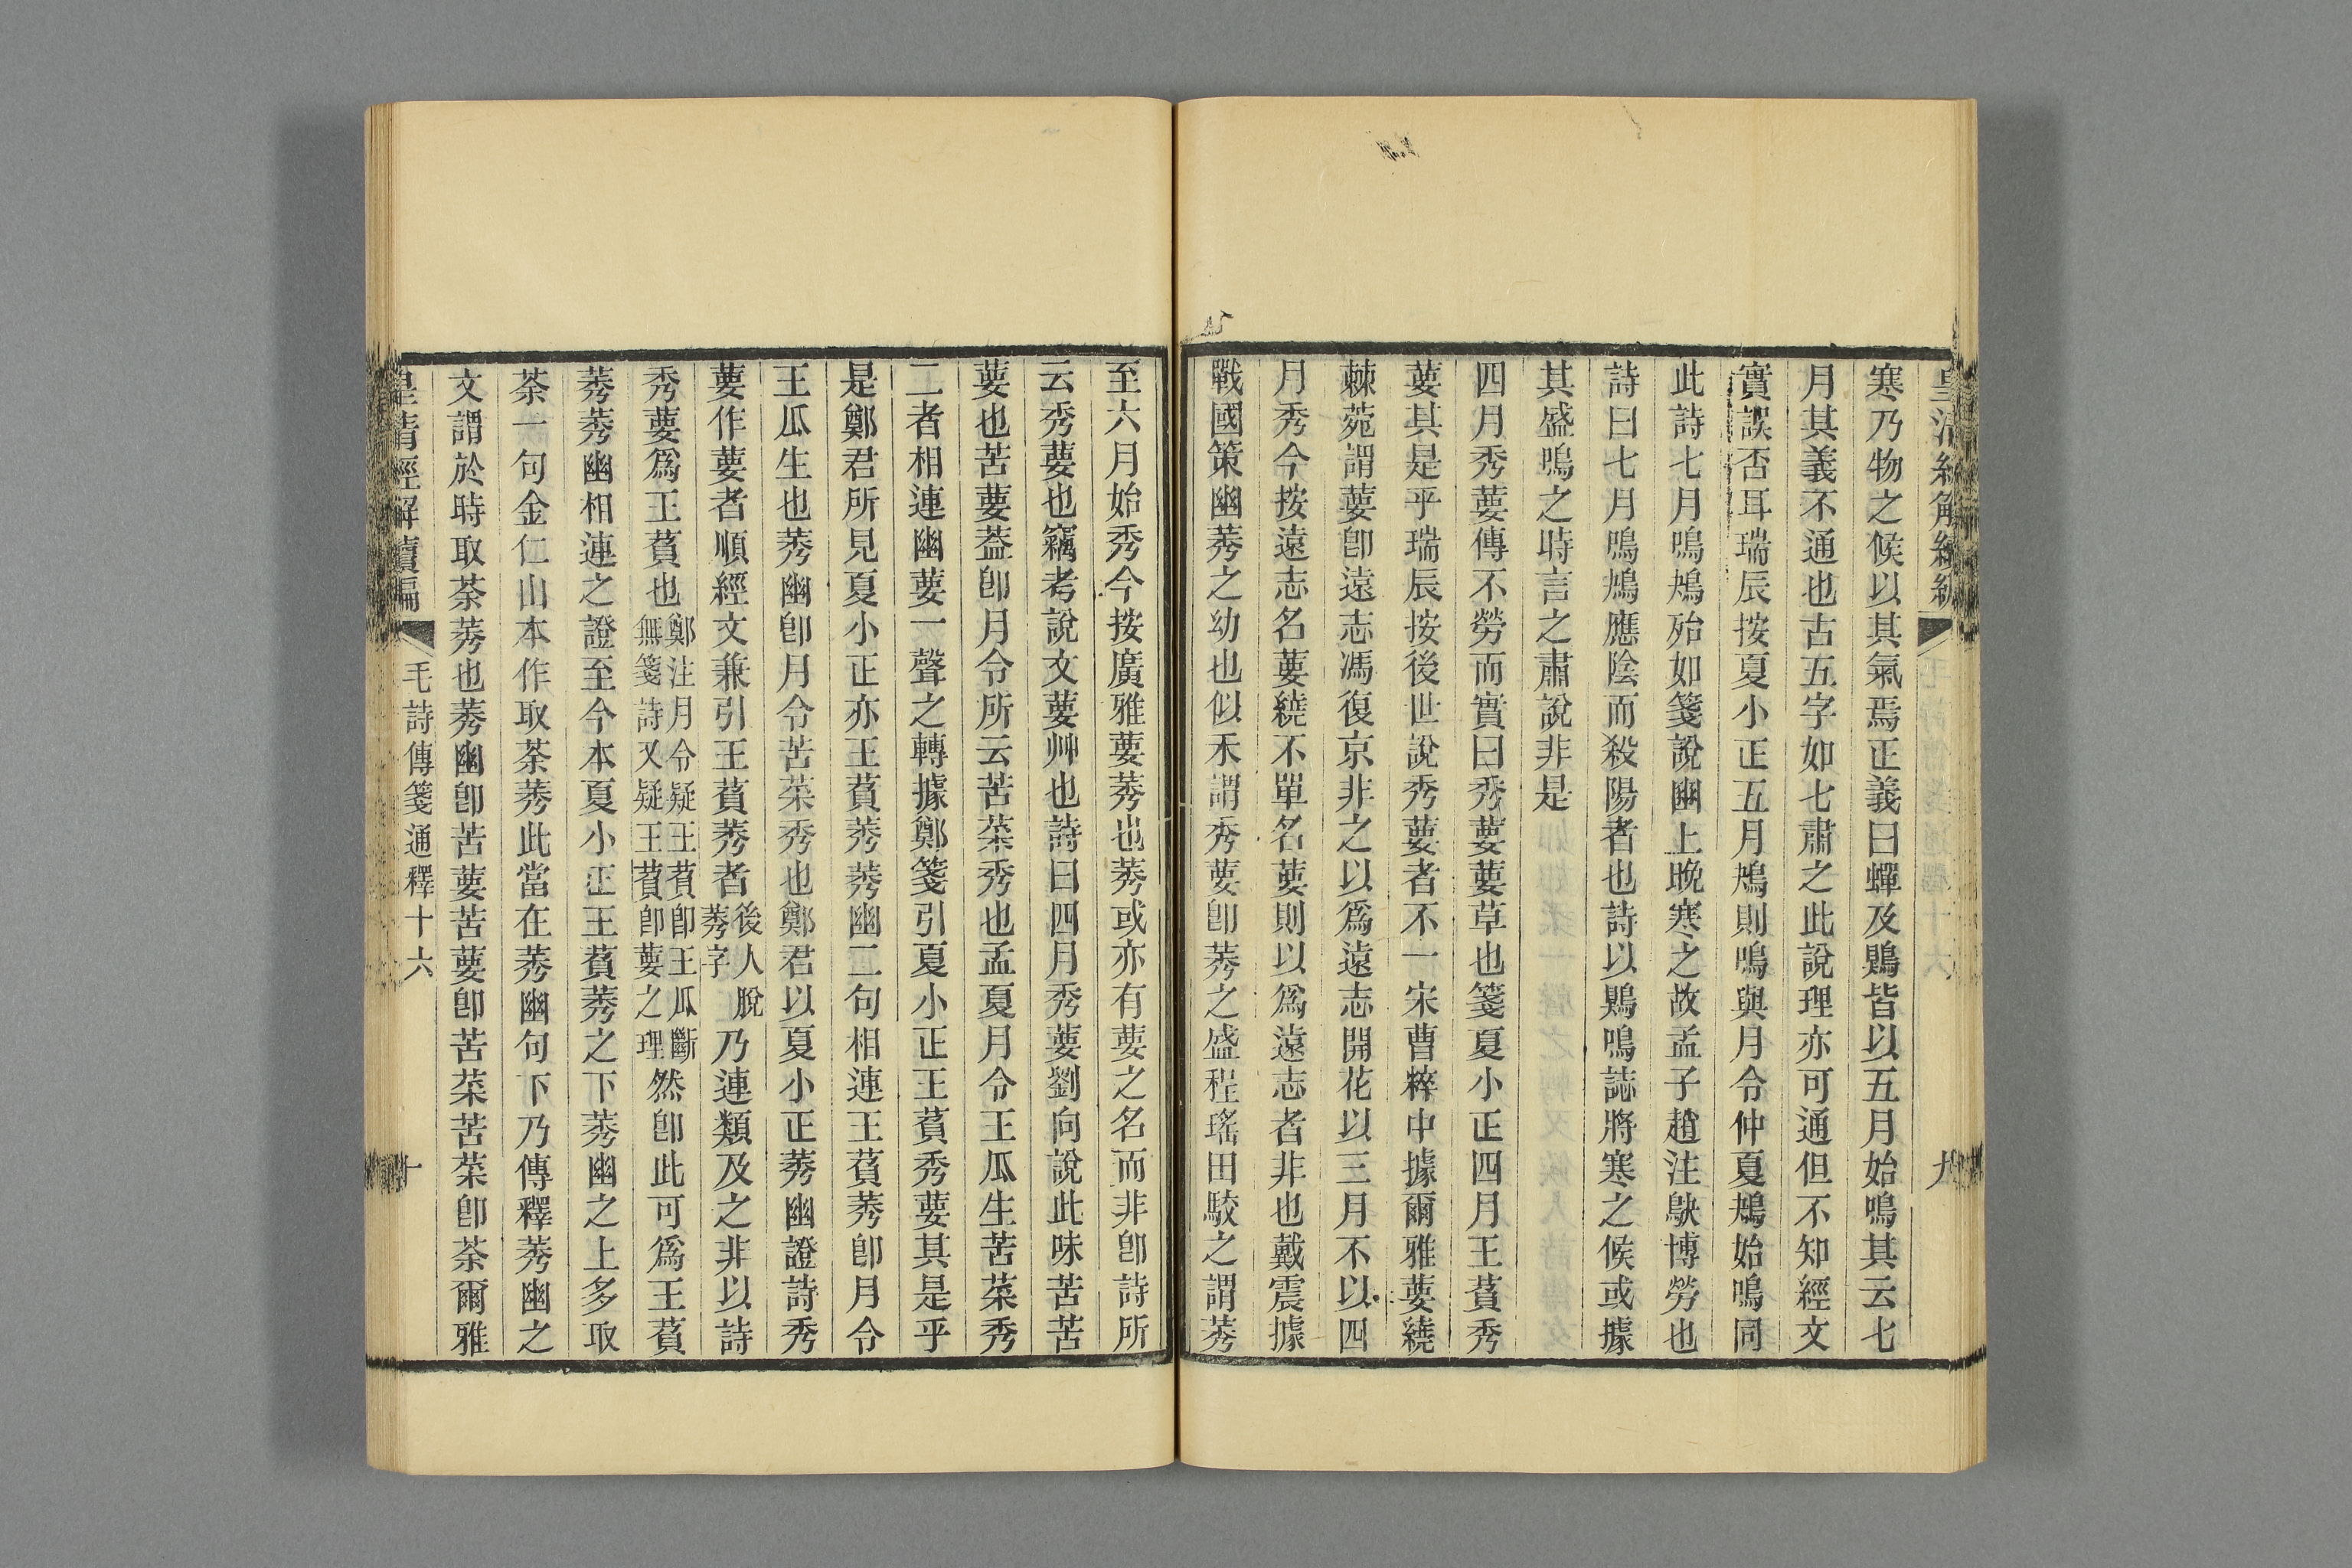 寒乃物之候以其氣焉正義曰蟬及鵙皆以五月始鳴其云七
月其義不通也古五字如七肅之此說理亦可通但不知經文
實誤否耳瑞辰按夏小正五月鴂則鳴與月令仲夏鵙始鳴同
此詩七月鳴鴂殆如箋說豳土晚寒之故孟子趙注鴃博勞也
詩曰七月鳴鴂應陰而殺陽者也詩以鵙鳴誌將寒之候或據
其盛鳴之時言之肅說非是
四月秀葽傳不勞而實曰秀葽葽草也箋夏小正四月王萯秀
葽其是乎瑞辰按後世說秀葽者不一宋曹粹中據爾雅葽繞
蕀菀謂葽卽遠志馮復京非之以爲遠志開花以三月不以四
月秀今按遠志名葽繞不單名葽則以爲遠志者非也戴震據
戰國策幽莠之幼也似禾謂秀葽卽莠之盛程瑤田駮之謂莠
至六月始秀今按廣雅葽莠也莠或亦有葽之名而非卽詩所
云秀葽也竊考說文葽艸也詩曰四月秀葽劉向說此味苦苦
葽也苦葽葢卽月令所云苦菜秀也孟夏月令王瓜生苦菜秀
二者相連幽葽一聲之轉據鄭箋引夏小正王萯秀葽其是乎
是鄭君所見夏小正亦王萯莠莠幽二句相連王萯莠卽月令
王瓜生也莠幽卽月令苦菜秀也鄭君以夏小正莠幽證詩秀
葽作葽者順經文兼引王萯莠者後人脫莠字乃連類及之非以詩
秀葽爲王萯也鄭注月令疑王萯卽王瓜斷無箋詩又疑王萯卽葽之理然卽此可爲王萯
莠莠幽相連之證至今本夏小正王萯莠之下莠幽之上多取
荼一句金仁山本作取荼莠此當在莠幽句下乃傳釋莠幽之
文謂於時取荼莠也莠幽卽苦葽苦葽卽苦菜苦菜卽荼爾雅
皇清經解續編 毛詩傳箋通釋十六 十